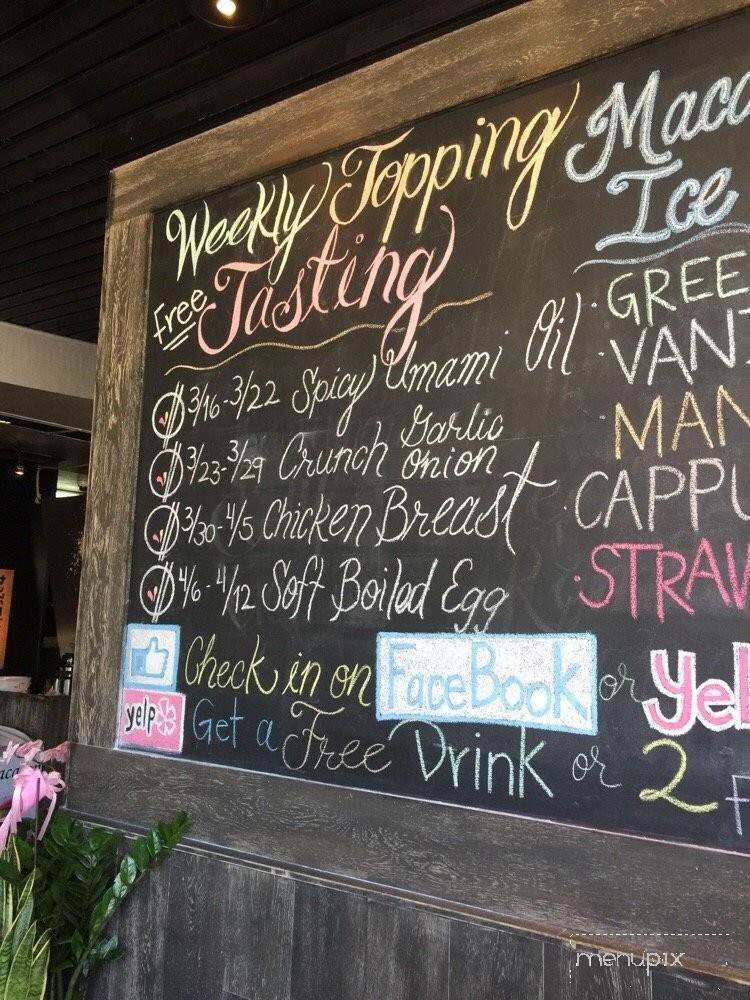 Weekly Topping
Free Tasting
3/16-3/22 Spicy Umami Oil
3/23-3/29 Crunch Garlic Onion
3/30-4/5 Chicken Breast
4/6-4/12 Soft Boiled Egg
Check in on FaceBook or Yel
yelp Get a Free Drink or 2 F
Maca
Ice
·GREE
·VANI
MAN
CAPPU
·STRAW
menupix